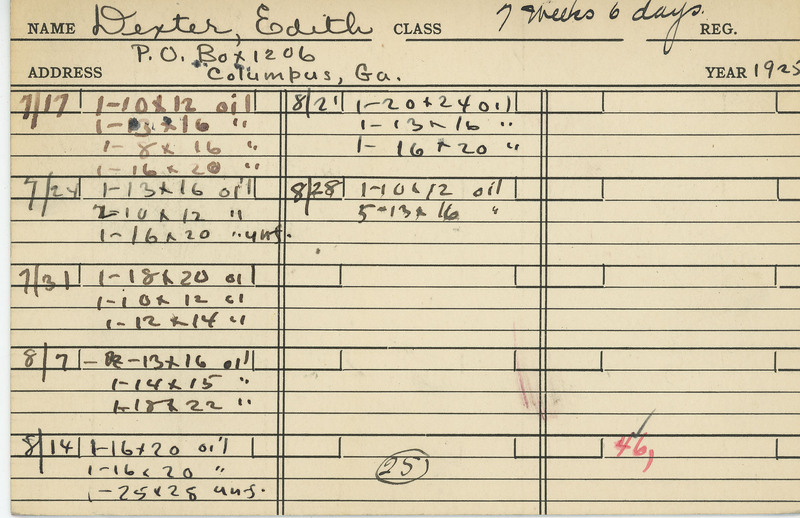 NAME Dexter, Edith CLASS 7 Weeks 6 days. REG.
P.O. Box 1206
ADDRESS Columpus, Ga. YEAR 1925
7/17 1-10x12 oil
1-13x16 "
1-8x16 "
1-16x20 "
7/24 1-13x16 oil
2-10x12 "
1-16x20 " unf.
7/31 1-18x20 oil
1-10x12 "
1-12x14 "
8/7 -13x16 oil
1-14x15 "
1-18x22 "
8/14 1-16x20 oil
1-16x20 "
1-25x28 unf.
8/21 1-20x24 oil
1-13x16 "
1-16x20 "
8/28 1-10x12 oil
5-13x16 "
25
46,